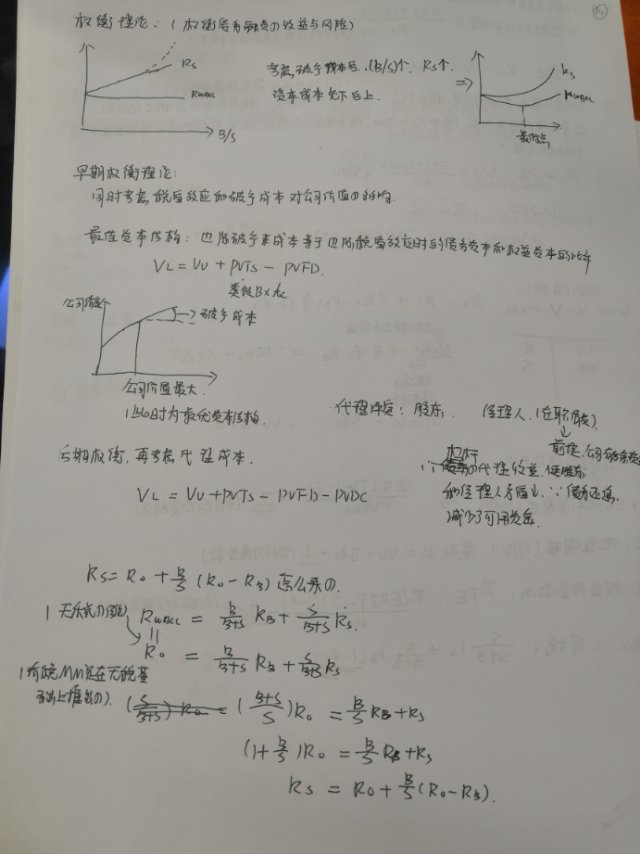 权衡理论：（权衡债务融资の收益与风险）
14
Rs
RWACC
B/S
考虑破产成本后，(B/S)↑，Rs↑.
资本成本先下后上.
⇒
Ks
KWACC
最低点
早期权衡理论：
同时考虑税盾效应和破产成本对公司价值の影响.
最佳资本结构：边际破产成本等于边际税盾效应时的债务资本和权益资本的比率
VL = VU + PVTS − PVFD.
类似B×tc
公司价值
破产成本
公司价值最大.
此时为最优资本结构.
代理冲突：股东. 经理人.（在职消费）
前提.公司有
后期权衡，再考虑代理成本.
杠杆
∵ の代理收益.使股东
和经理人矛盾↓.∵债务还息,
减少了可用资金.
VL = VU + PVTS − PVFD − PVDC
Rs = R0 + B/S (R0 − RB) 怎么来の.
（无税时の ） RWACC = B/(B+S) RB + S/(B+S) Rs.
R0 = B/(B+S) RB + S/(B+S) Rs
（有税MM是在无税基
础上推出の）
((B+S)/S) R0 = B/S RB + Rs
(1 + B/S) R0 = B/S RB + Rs
Rs = R0 + B/S (R0 − RB).